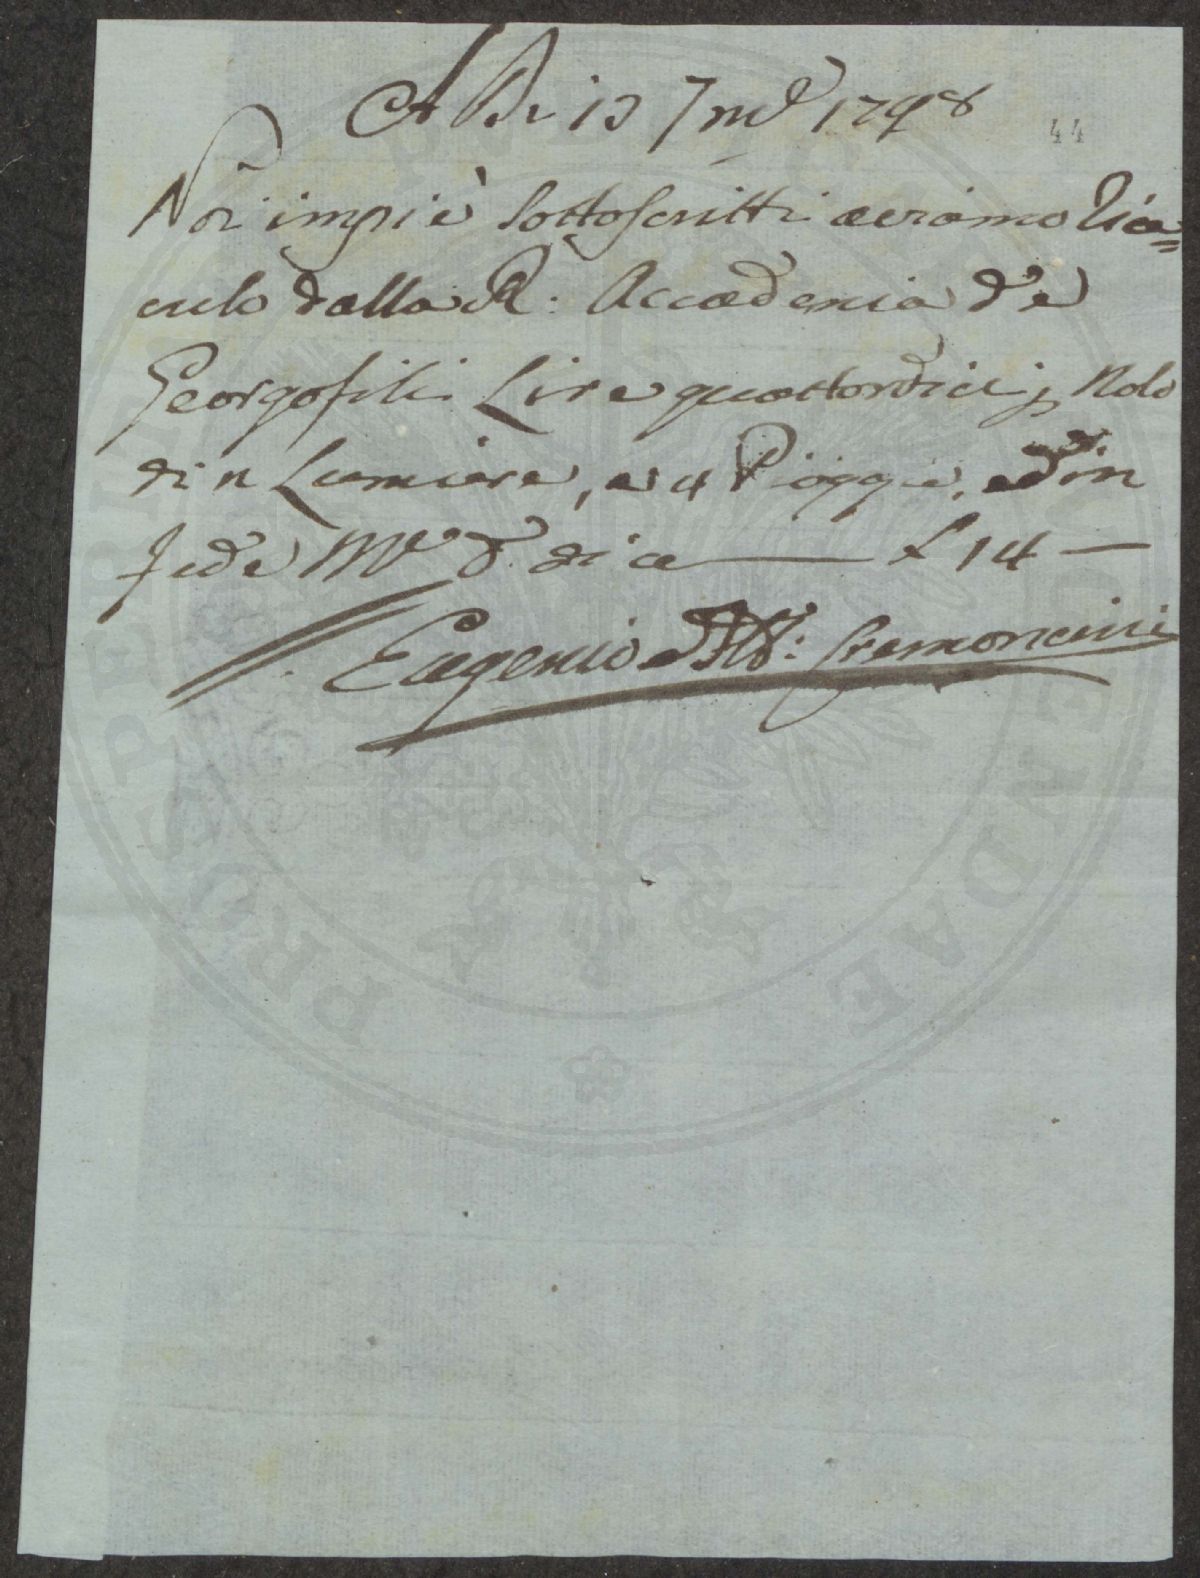 A Di 13 7mbe 1798
44
Noi impiè sottoscritti aviamo Rice=
uto dalla R: Accademia de
Georgofili Lire quattordici p Nolo
di n Lumiere, e 4 Pioggie, ed in
fede Mo d. dico — £ 14 —
Eugenio e : Cremoncini
PROSPERITATI PUBLICAE AUGENDAE